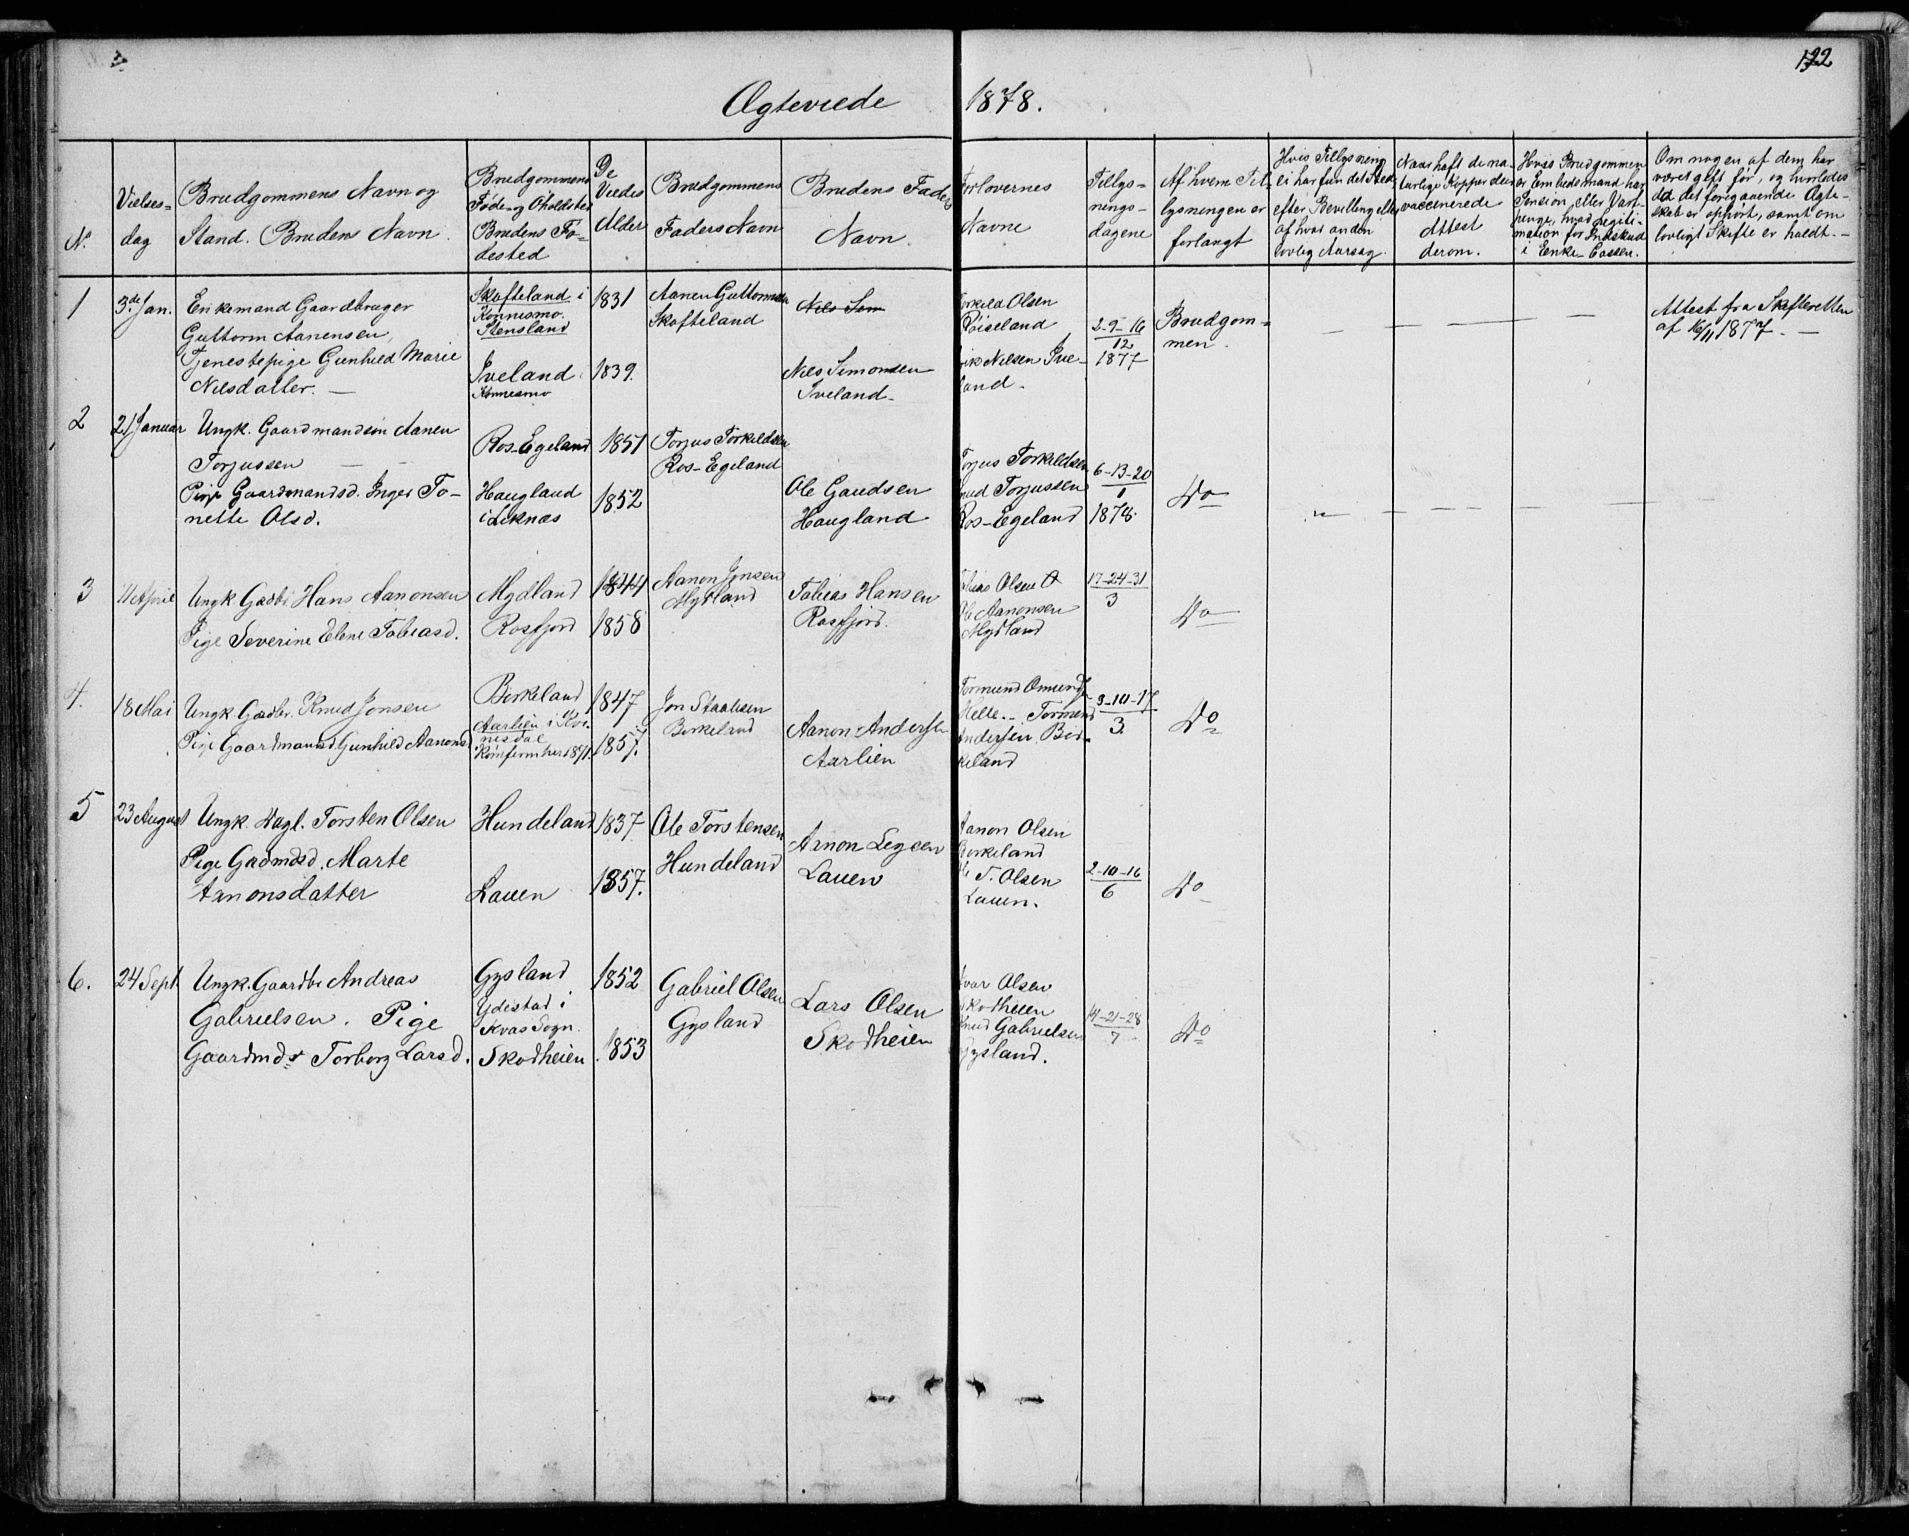 122
Ægteviede 1878.
No.
Vielses-
dag
Brudgommens Navn og
Stand. Brudens Navn.
Brudgommens
Føde- og Opholdsted
Brudens Fø-
dested
De
Viedes
Alder
Brudgommens
Faders Navn
Brudens Faders
Navn.
Forlovernes
Navne
Tillys-
nings-
dagene
Af hvem Til-
lysningen er
forlangt
Hvis Tillysning
ei har fundet Sted
efter Bevilling eller
af hvad anden
lovlig Aarsag.
Naar haft de na-
turlige Kopper eller
vaccinerede
Attest
derom.
Hvis Brudgommen
er Embedsmand har
Pension eller Vart-
penge, hvad Legiti-
mation for Indskud
i Enke-Cassen.
Om nogen af dem har
været gift før, og hvorledes
da det foregaaende Ægte-
skab er ophørt, samt om
lovligt Skifte er holdt. -
1
3de Jan.
Enkemand Gaardbruger
Guttorm Aanensen,
Tjenestepige Gunhild Marie
Nilsdatter. —
Skofteland i
Konnesmo.
Stensland
Iveland.
Konnesmo
1831
1839.
Aanen Guttormsen
Skofteland
Nils Sem
Nils Simonsen
Iveland-
Torkild Olsen
Røiseland
Erik Nilsen Ive-
land.
2-9-16
12
1877
Brudgom-
men.
Attest fra Skifteretten
af 16/11 1877. —
2
21 Januar
Ungk. Gaardmandsøn Aanen
Torjussen
Pige Gaardmandsd. Inger To-
nette Olsd.
Ros-Egeland
Haugland
i Liknæs
1851
1852
Torjus Torkildsen
Ros-Egeland
Ole Gaudsen
Haugland
Torjus Torkildsen
Knud Torjussen
Ros-Egeland
6-13-20
1
1878.
Do
3
11 April
Ungk Gadbr Hans Aanonsen
Pige Severine Elene Tobiasd.
Mydland
Rosfjord
1844
1858
Aanon Jonsen
Mydland
Tobias Hansen
Rosfjord.
Tobias Olsen
Ole Aanonsen
Mydland
17-24-31
3
Do
4.
18 Mai
Ungk Gadbr. Knud Jonsen
Pige Gaardmansd Gunhild Aanonsd
Birkeland
Aarlien i Kvi-
nesdal
Konfirm her 1871.
1847
1857.
Jon Staalesen
Birkeland
Aanon Andersen
Aarlien
Tormund Omunds
Helle. - Tormund
Andersen Bir-
keland
3-10-17
3.
Do
5
23 August
Ungk. Dagl. Torsten Olsen
Pige Gadmdsd. Marte
Arnonsdatter
Hundeland
Lauen
1837
1857.
Ole Torstensen
Hundeland
Arnon Legeen
Lauen
Aanon Olsen
Birkeland
Ole T. Olsen
Lauen.
2-10-16
6
Do
6.
24 Sept
Ungk. Gaardbr Andreas
Gabrielsen. Pige
Gaardmds Torborg Larsd.
Gysland
Ydestad i
Kvas Sogn.
Skodheien
1852
1853
Gabriel Olsen
Gysland
Lars Olsen
Skodheien
Ivar Olsen
Skodheien
Knud Gabrielsen
Gysland.
14-21-28
7
Do